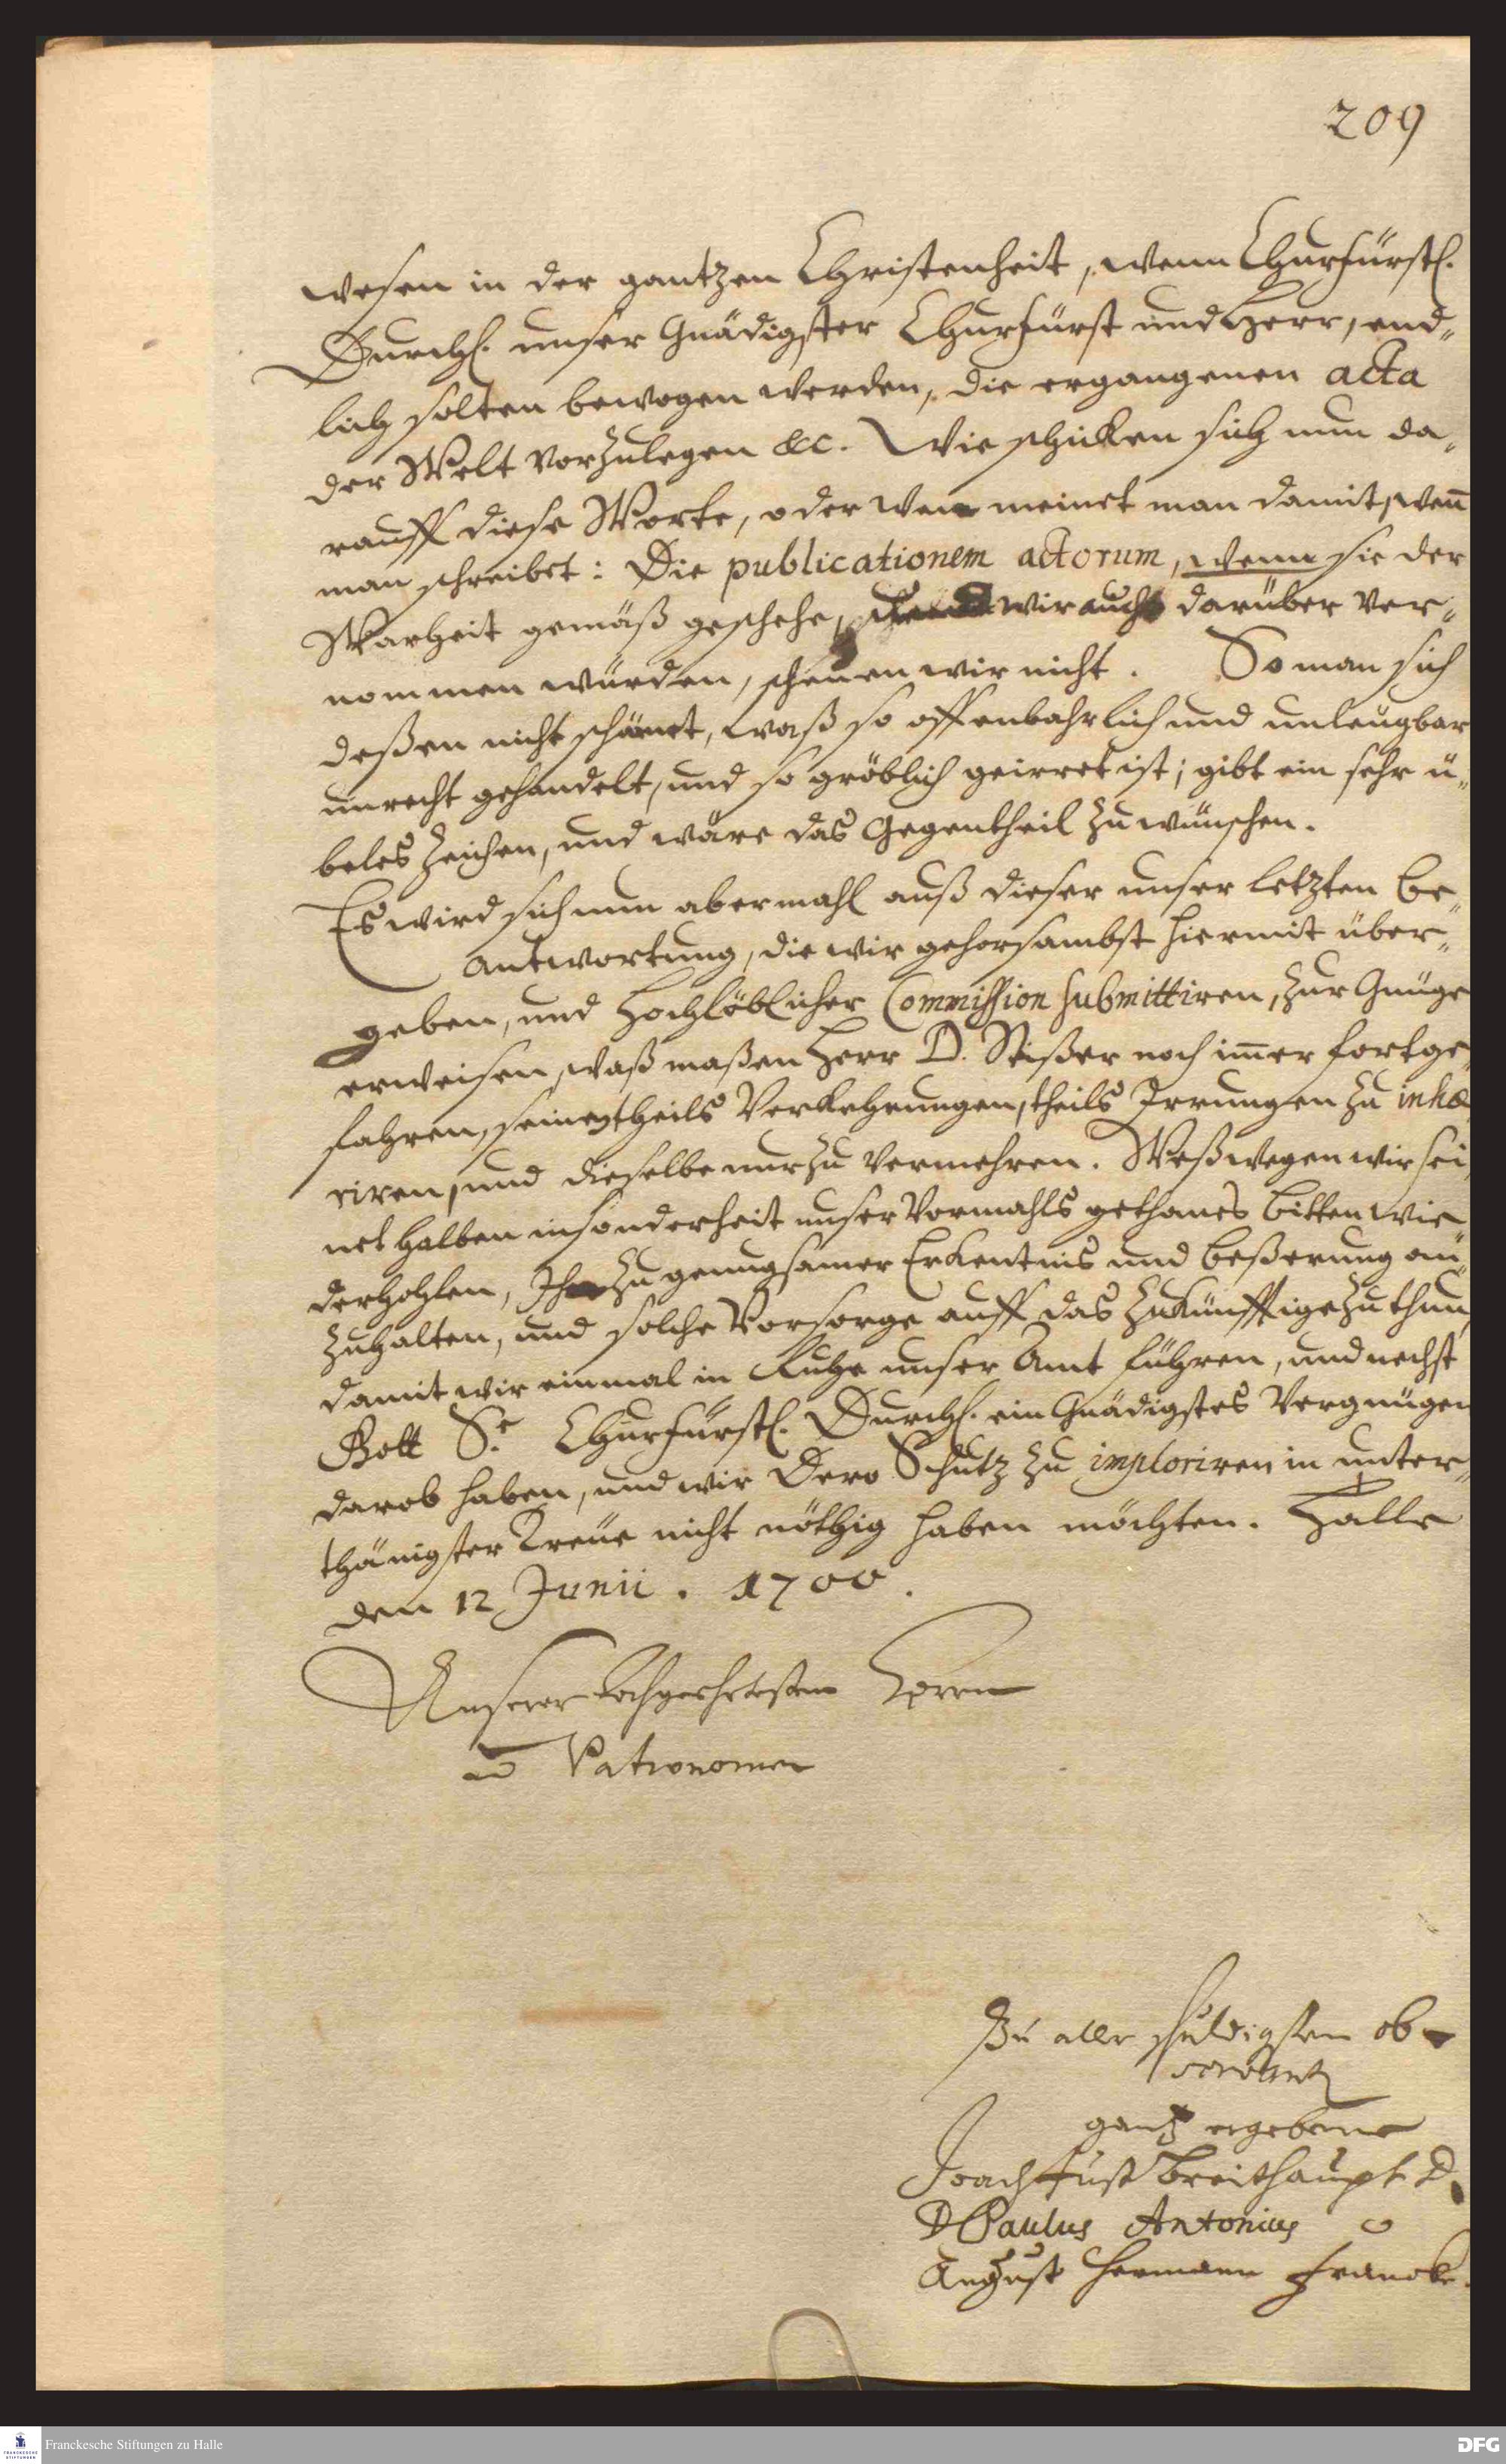 209
wesen in der gantzen Christenheit, wenn Churfürstl.
Durchl. unser Gnädigster Churfürst und Herr, end„
lich solten bewogen werden, die ergangenen acta
der Welt vorzulegen &c. Wie schicken sich nun da„
rauff diese Worte, oder wen meinet man damit, wen̄
man schreibet: Die publicationem actorum, wenn sie der
Warheit gemäß geschehe, wir auch darüber ver„
nommen würden, scheuen wir nicht. So man sich
deßen nicht schämet, waß so offenbahrlich und unleugbar
unrecht gehandelt, und so gröblich geirret ist; gibt ein sehr ü„
beles Zeichen, und wäre das Gegentheil zu wünschen.
Es wird sich nun abermahl auß dieser unser letzten Be„
antwortung, die wir gehorsambst hiermit über„
geben, und Hochlöblicher Commission submittiren, zur Gnüge
erweisen, waß maßen Herr D. Stißer noch im̄er fortge„
fahren, seine theils Verkehrungen, theils Irrungen zu inhæ
riren, und dieselbe nur zu vermehren. Weßwegen wir sei„
net halben insonderheit unser vormahls gethanes bitten wie„
derhohlen, Ihn zu genugsamer Erkentnis und beßerung an„
zuhalten, und solche Vorsorge auff das Zukünfftige zu thun,
damit wir einmal in Ruhe unser Amt führen, und nechst
Gott Se. Churfürstl. Durchl. ein Gnädigstes Vergnügen
darob haben, und wir Dero Schutz zu imploriren in unter„
thänigster Treüe nicht nöthig haben möchten. Halle
den 12 Junii. 1700.
Unserer Hochgeehrtesten Herren
u. Patronomen
Zu aller schuldigsten ob„
servantz
gantz ergebene
Joach. Just Breithaupt D.
D Paulus Antonius
August Hermann Francke.
Franckesche Stiftungen zu Halle
FRANCKESCHE STIFTUNGEN
DFG